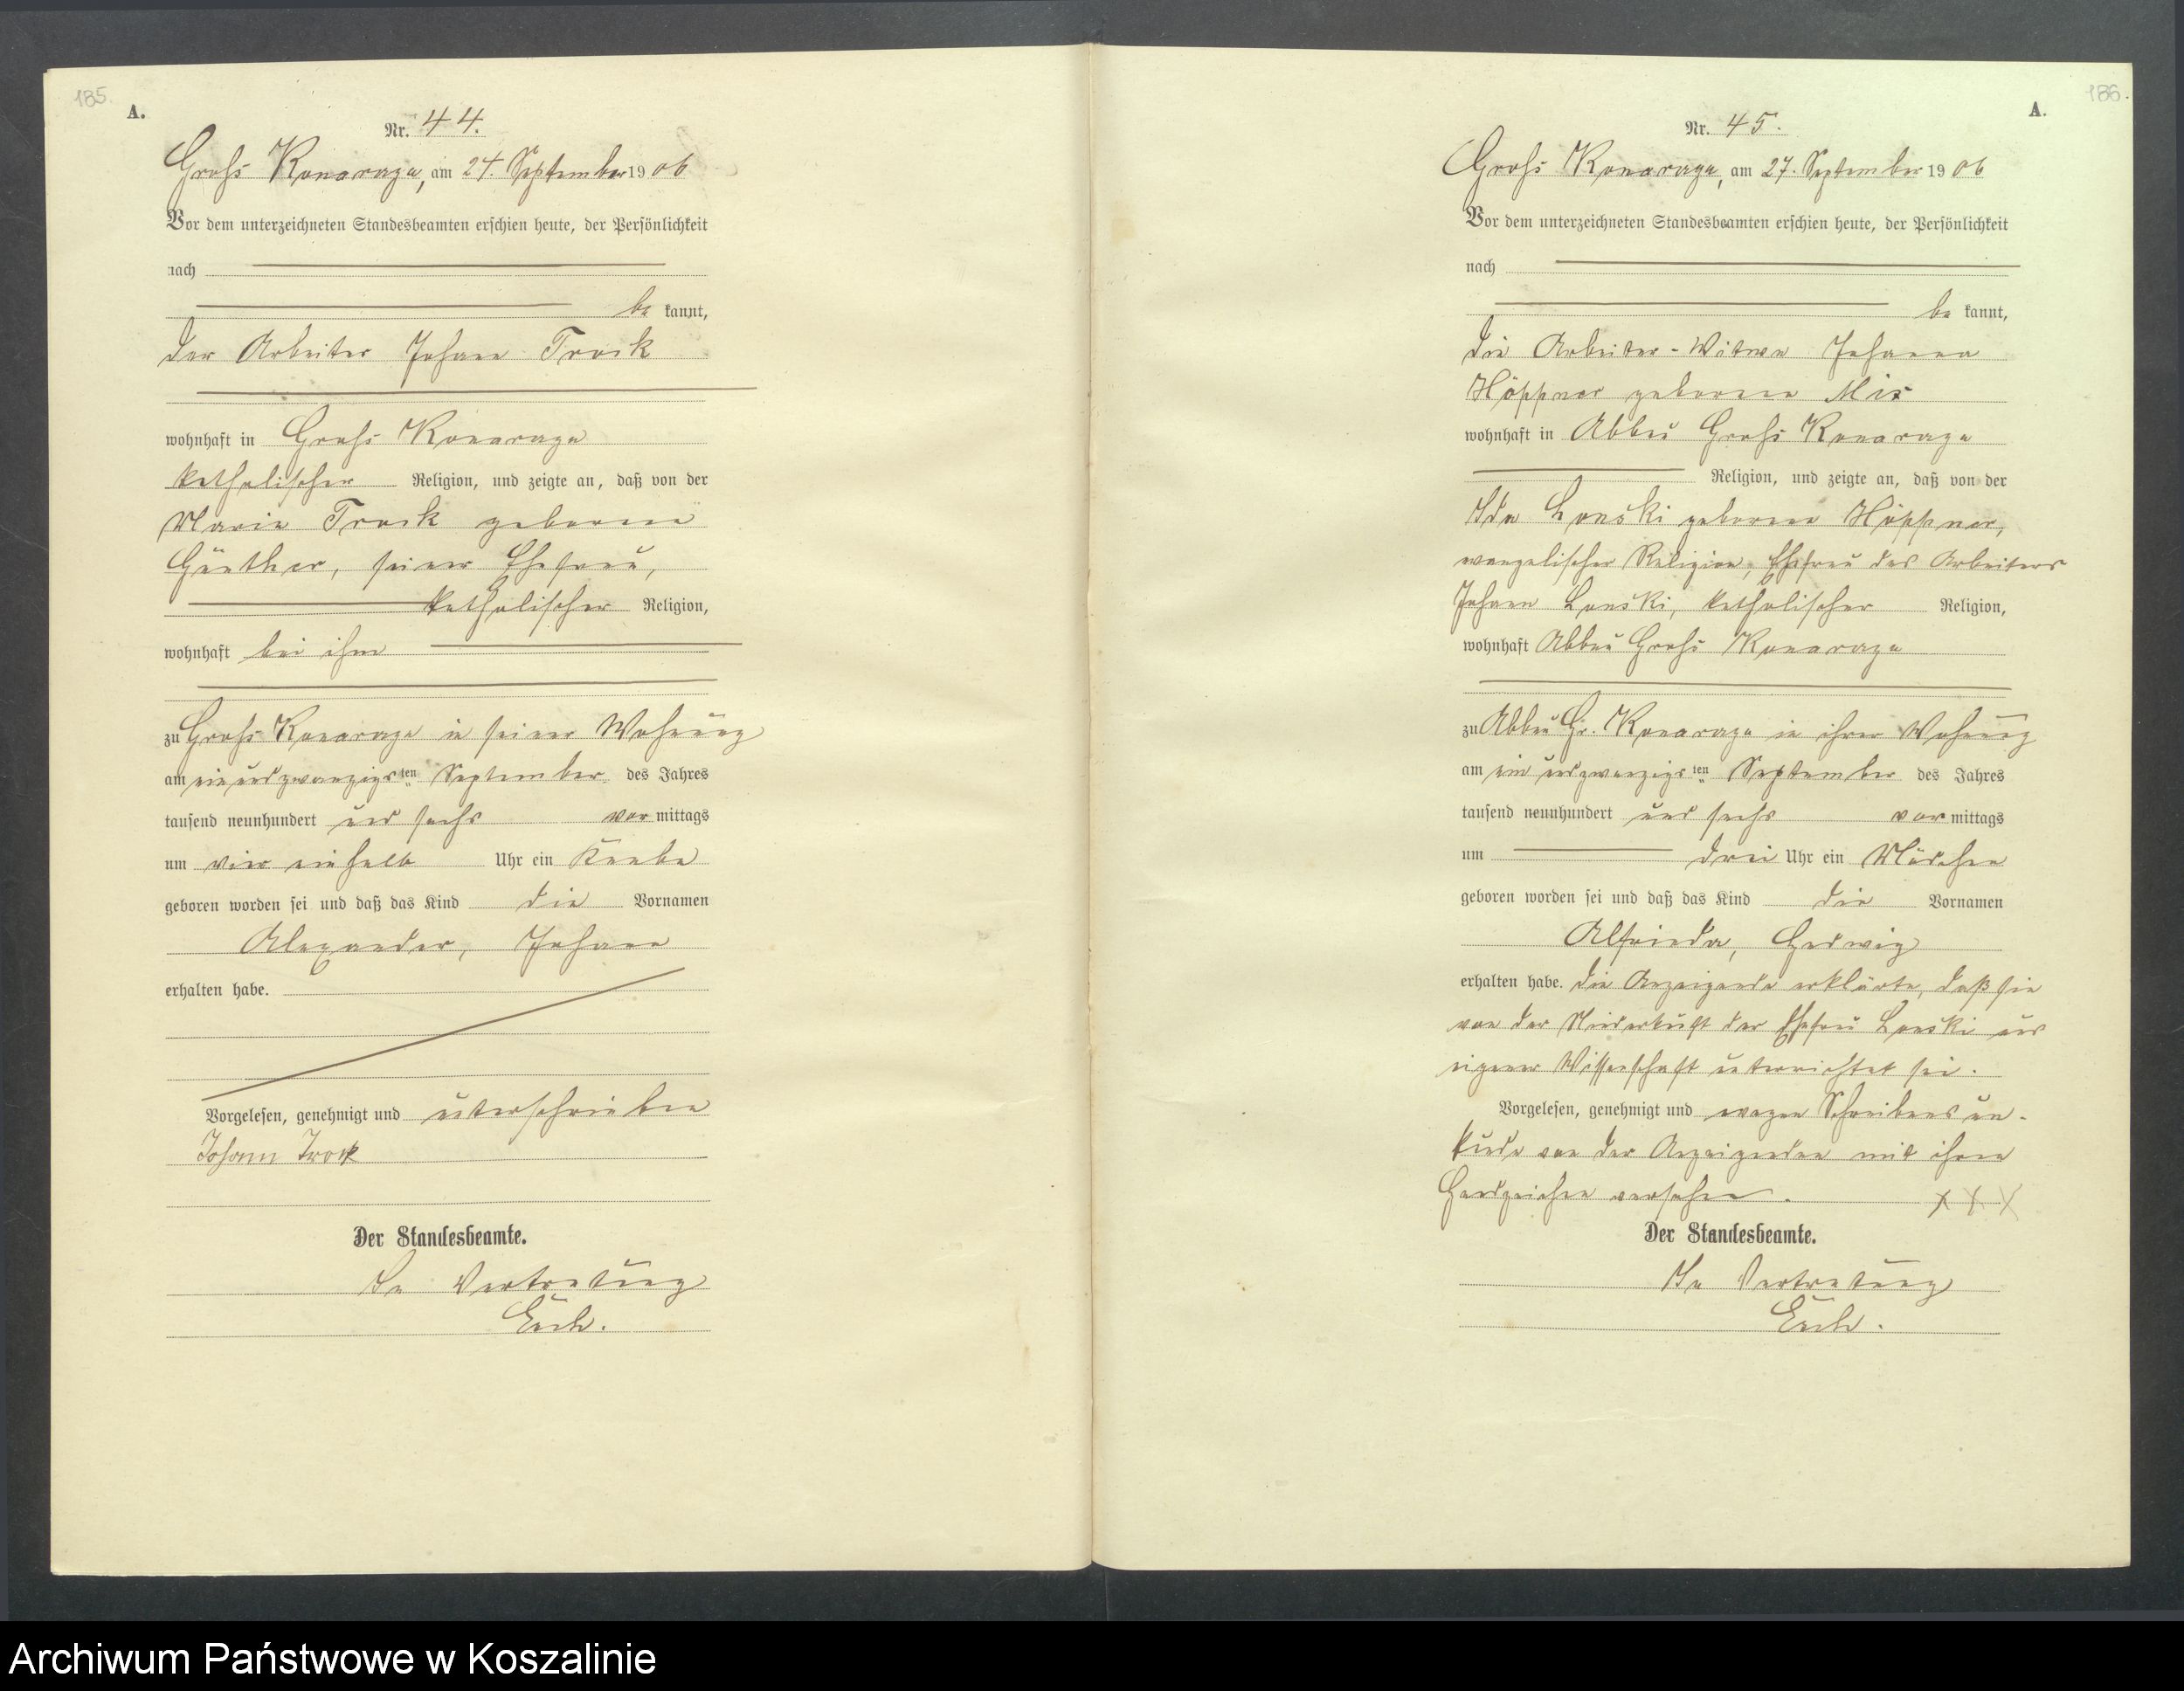 185.
A.
Nr. 44.
Groß Konarczyn, am 24. September 1906
Vor dem unterzeichneten Standesbeamten erschien heute, der Persönlichkeit
nach
be kannt,
der Arbeiter Johann
wohnhaft in Groß
katholischer Religion, und zeigte an, daß von der
Marie geborene
Günther, seiner Ehefrau,
katholischer Religion,
wohnhaft bei ihm
zu Groß in seiner Wohnung
am einundzwanzigsten September des Jahres
tausend neunhundert und sechs vormittags
um vier einhalb Uhr ein Knabe
geboren worden sei und daß das Kind die Vornamen
Alexander, Johann
erhalten habe.
Vorgelesen, genehmigt und unterschrieben
Johann
Der Standesbeamte.
In Vertretung
186.
A.
Nr. 45.
Groß am 27. September 1906
Vor dem unterzeichneten Standesbeamten erschien heute, der Persönlichkeit
nach
be kannt,
die Arbeiter-Witwe Johanna
Höppner geborene
wohnhaft in Abbau Groß
Religion, und zeigte an, daß von der
Ida Lonski geborene Höppner,
evangelischer Religion, Ehefrau des Arbeiters
Johann Lonski, katholischer Religion,
wohnhaft Abbau Groß
zu Abbau Gr. in ihrer Wohnung
am einundzwanzigsten September des Jahres
tausend neunhundert und sechs vormittags
um drei Uhr ein Mädchen
geboren worden sei und daß das Kind die Vornamen
Alfrieda, Hedwig
erhalten habe. Die Anzeigende erklärte, daß sie
von der Niederkunft der Ehefrau Lonski aus
eigener Wissenschaft unterrichtet sei.
Vorgelesen, genehmigt und wegen Schreibens un-
kunde von der Anzeigenden mit ihren
Handzeichen versehen. x x x
Der Standesbeamte.
In Vertretung
Archiwum Państwowe w Koszalinie